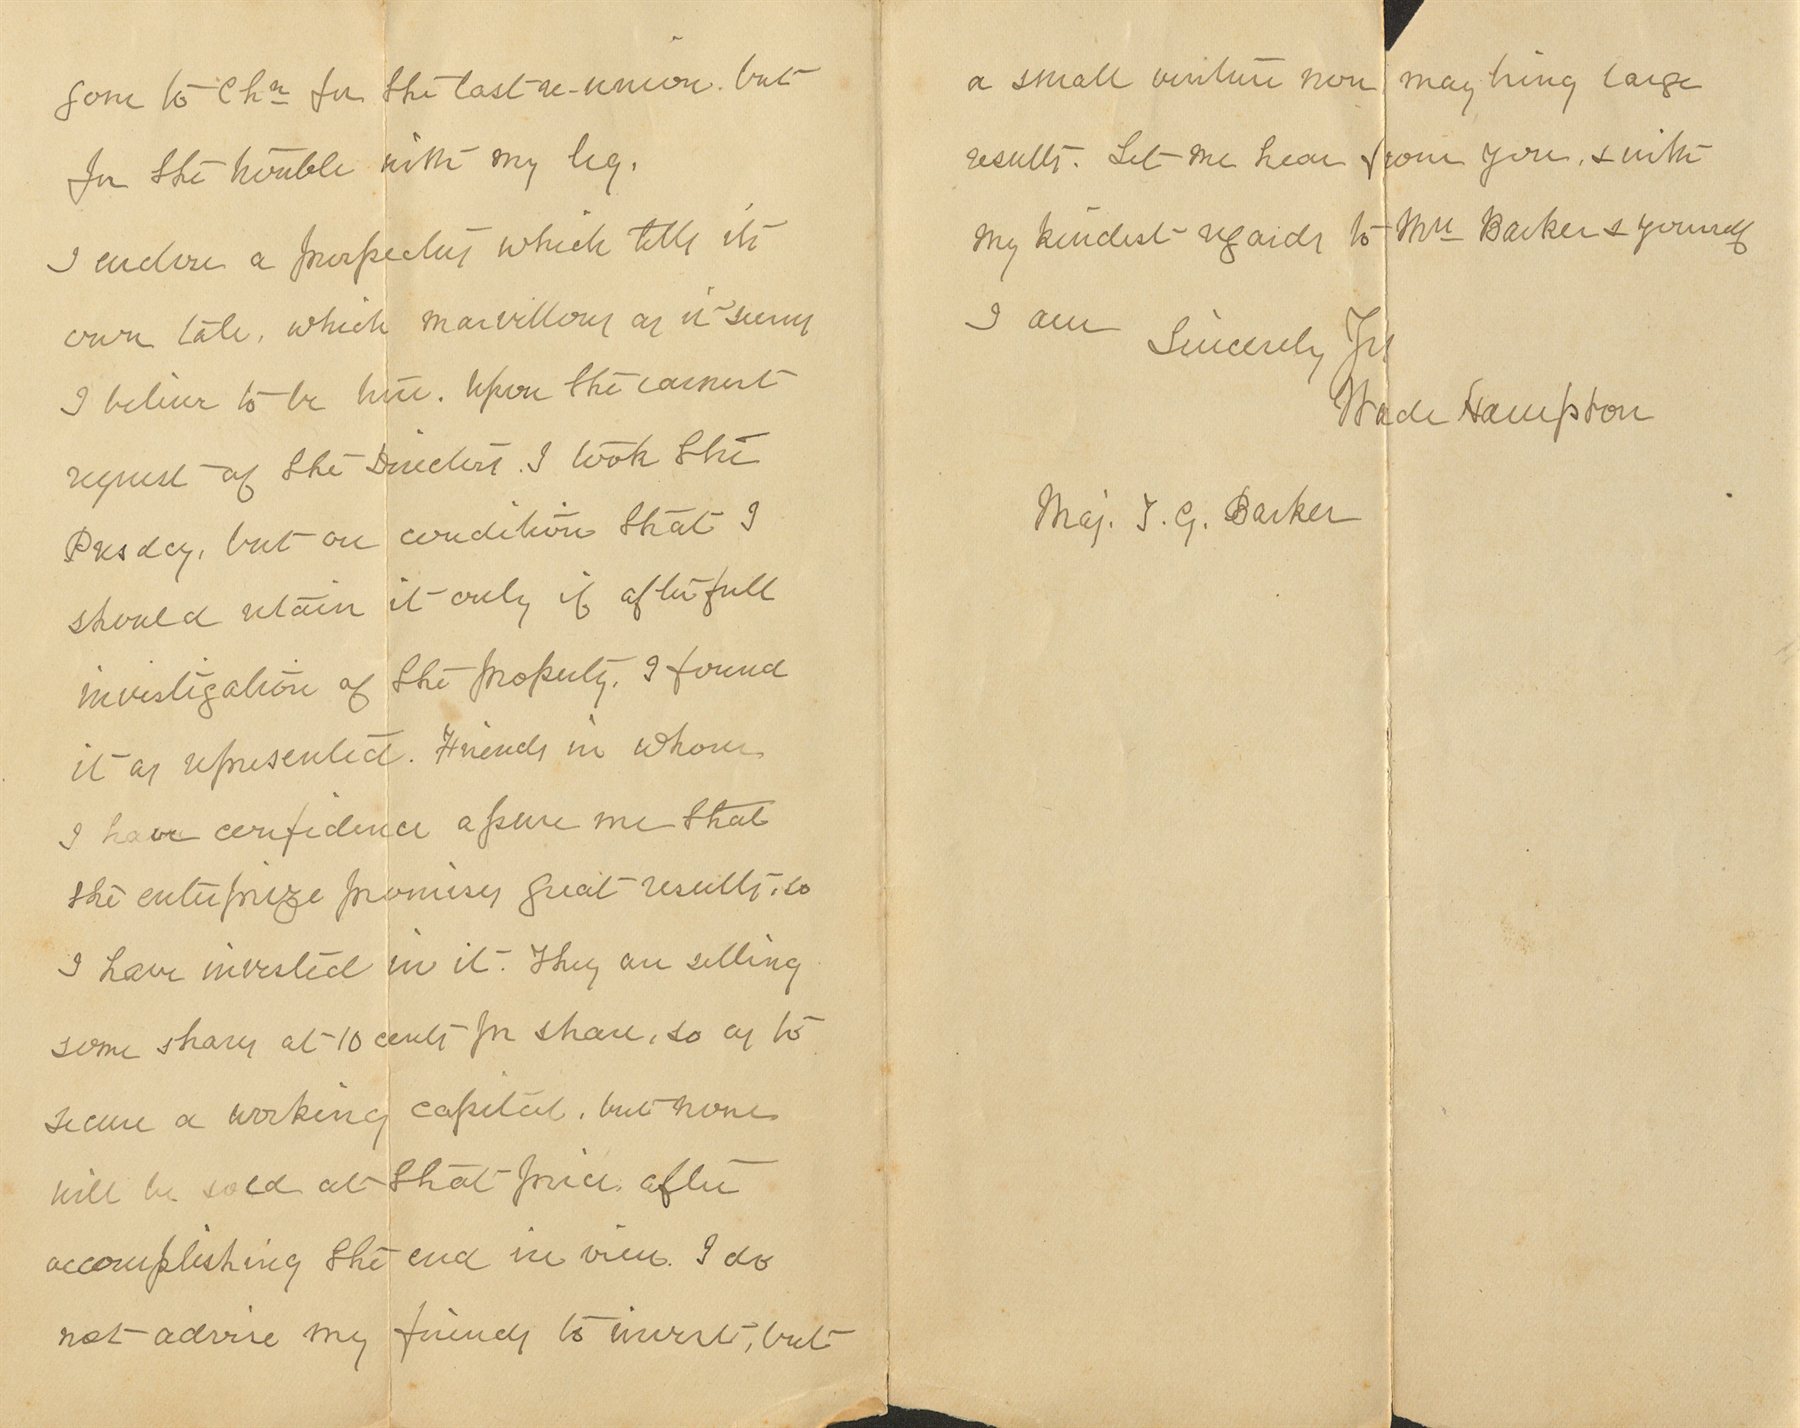 gone to Chn for the last re-union. but
for the trouble with my leg.
I enclose a prospectus which tells its
own tale, which marvellous as it seems
I believe to be true. Upon the earnest
request of the Directors. I took the
Presdcy, but on condition that I
should retain it only if after full
investigation of the property, I found
it as represented. Friends in whom
I have confidence assure me that
the enterprize promises great results, so
I have invested in it. They are selling
some shares at 10 cents pr share, so as to
secure a working capital, but none
will be sold at that price after
accomplishing the end in view. I do
not advise my friends to invest, but
a small venture now may bring large
results. Let me hear from you, & with
my kindest regards to Mrs Barker & yourself
I am Sincerely Yrs
Wade Hampton
Maj. T. G. Barker